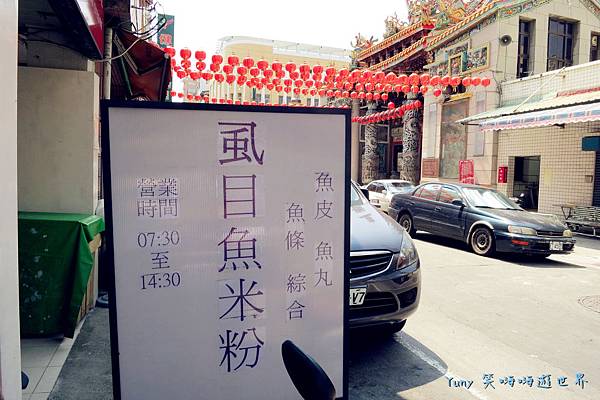 虱目魚米粉
魚皮 魚丸
魚條 綜合
營業
時間
07:30
至
14:30
Yuny 笑呵呵遊世界